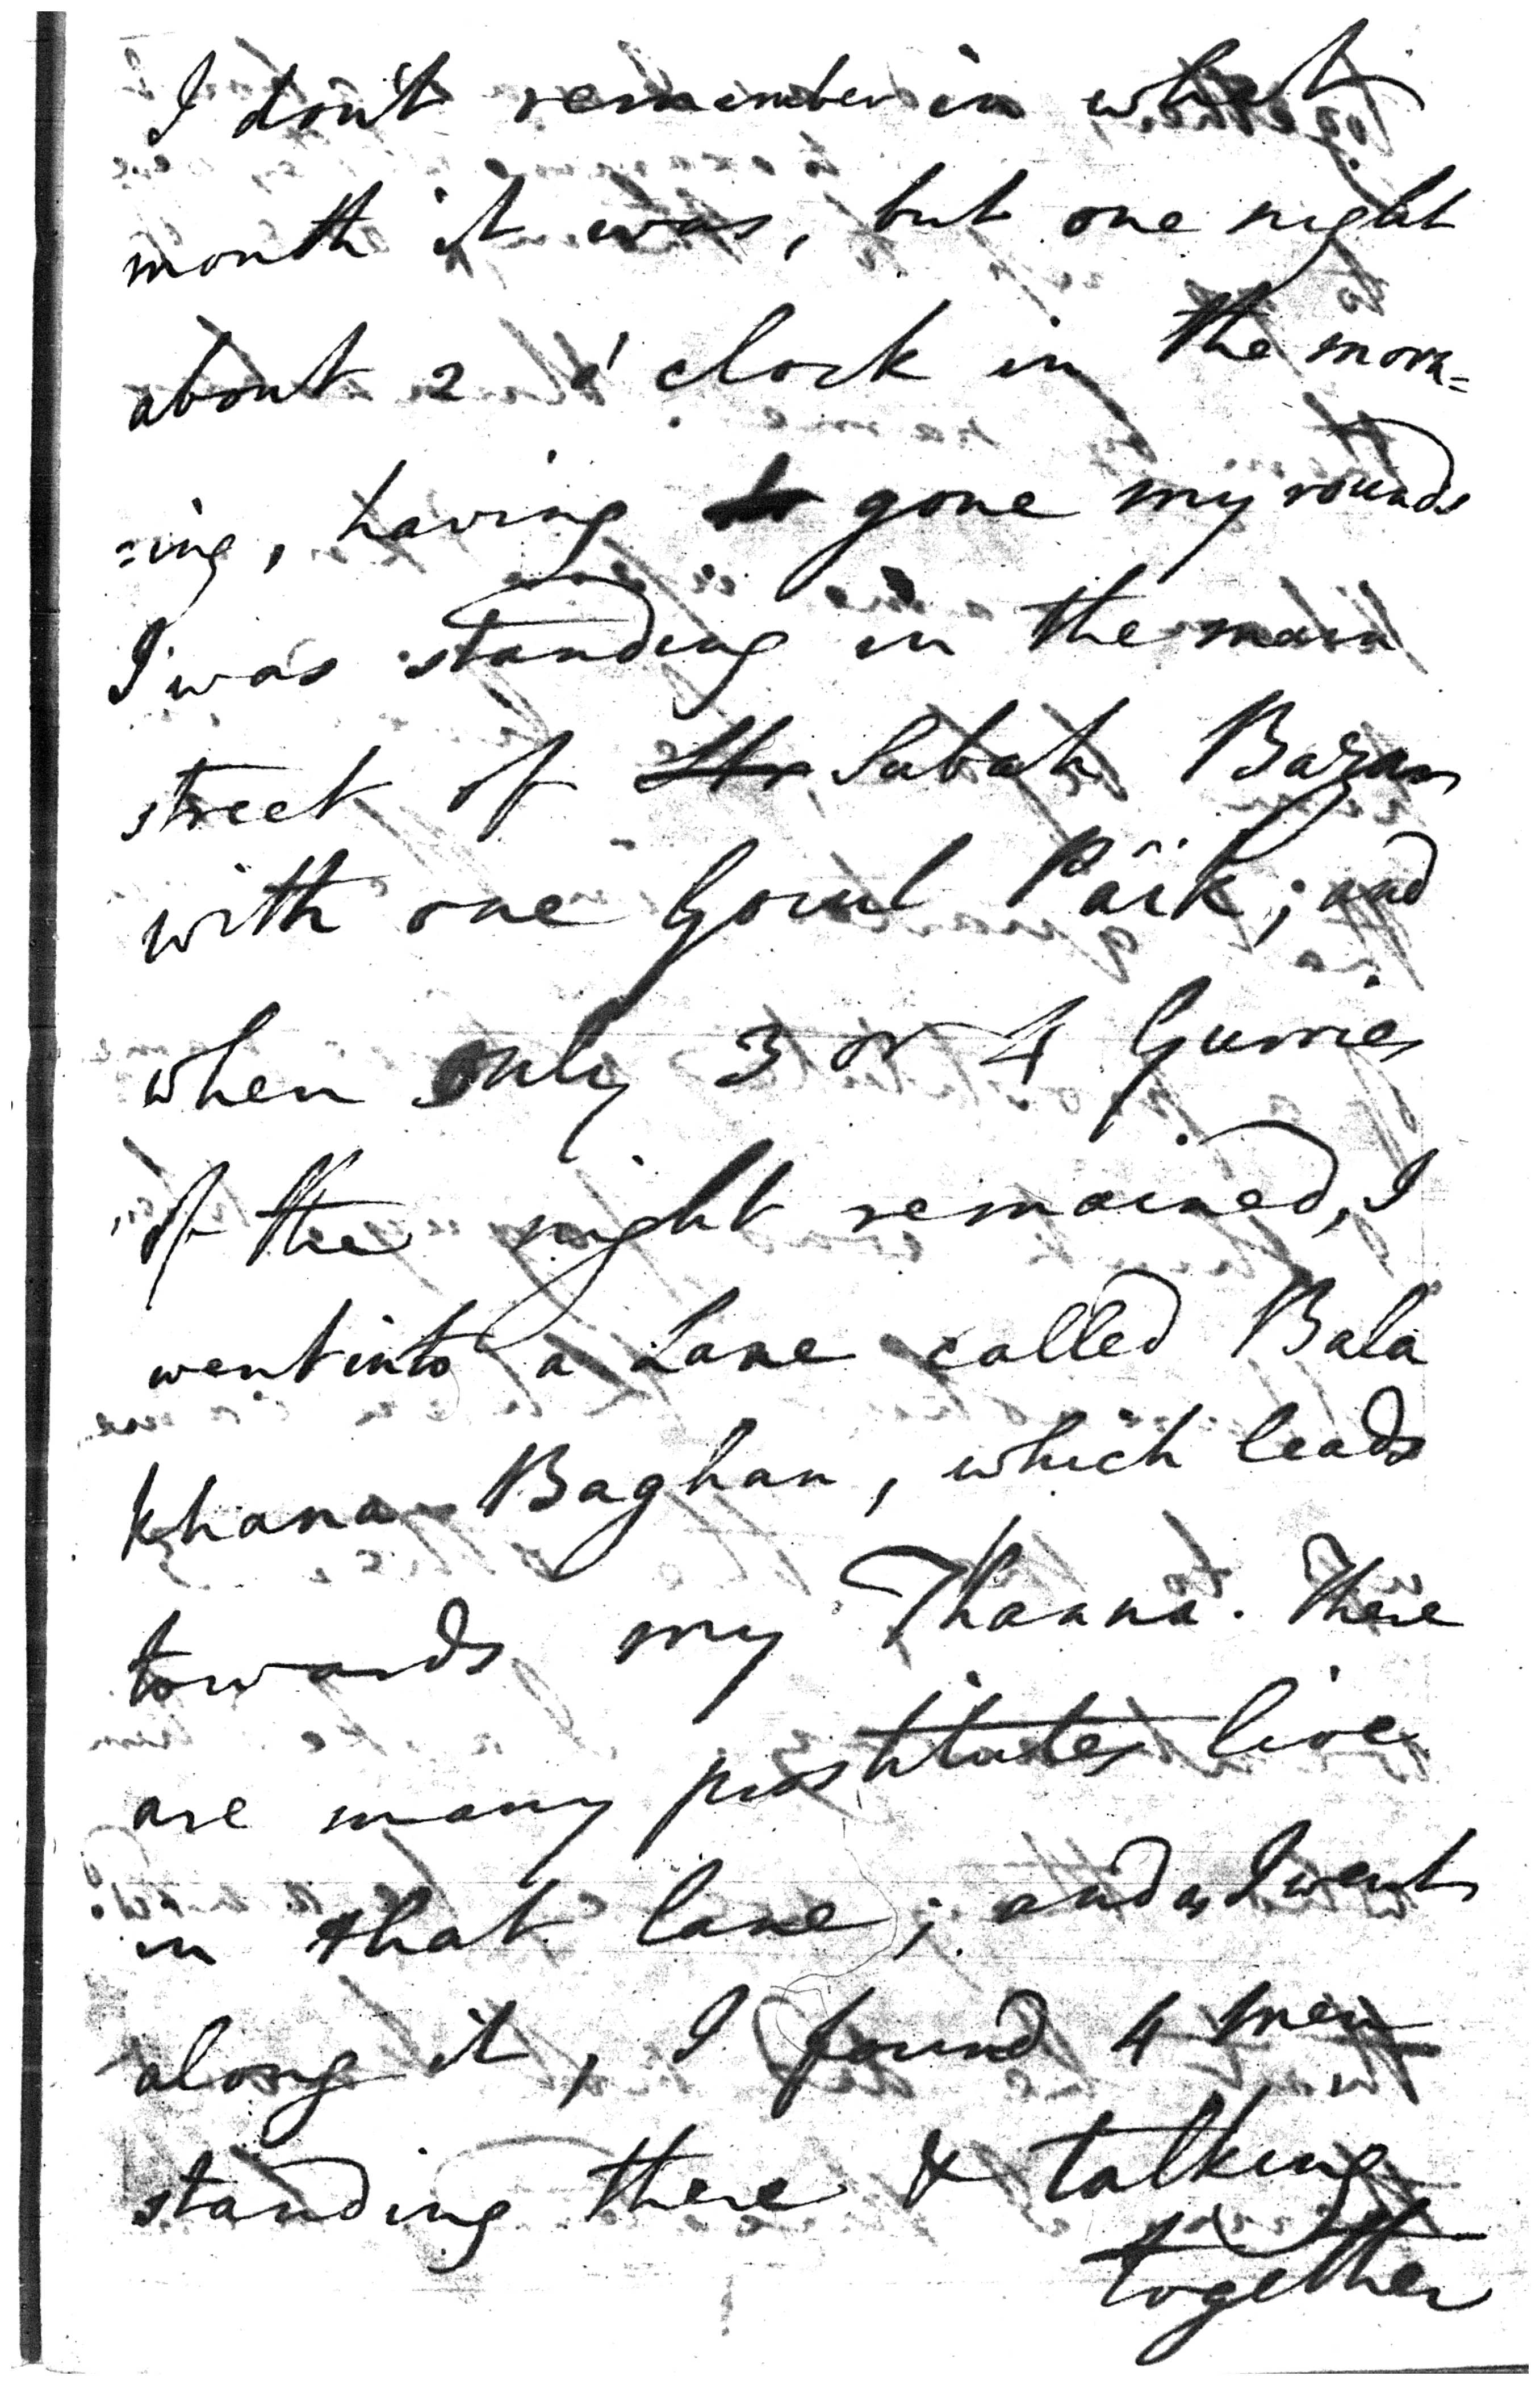 I don't remember in what
month it was, but one night
about 2 o'clock in the morn=
=ing, having gone my rounds
I was standing in the main
street of Sabah Bazar
with one Päik; and
when only 3 or 4 Gurries
of the night remained, I
went into a Lane called Bala
Khana Baghan, which leads
towards my Thanna. There
are many prostitutes live
in that lane; and as I went
along it, I found 4 men
standing there & talking
together